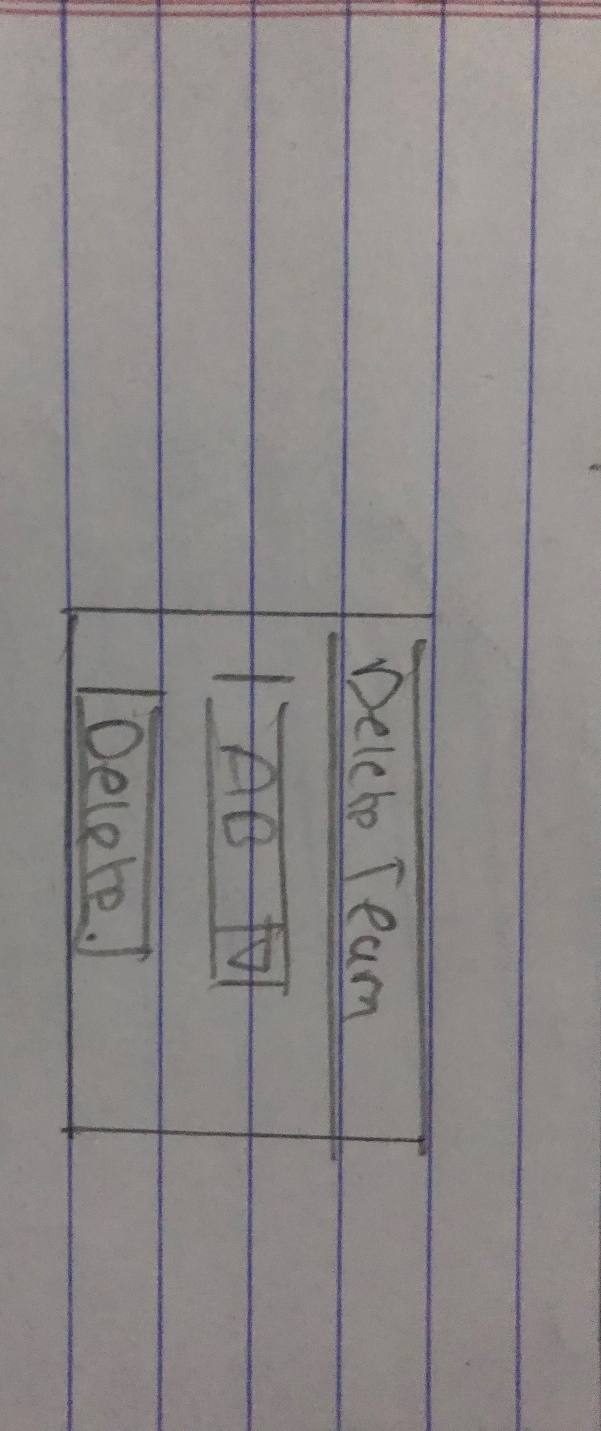 Delete Team
AB
Delete.